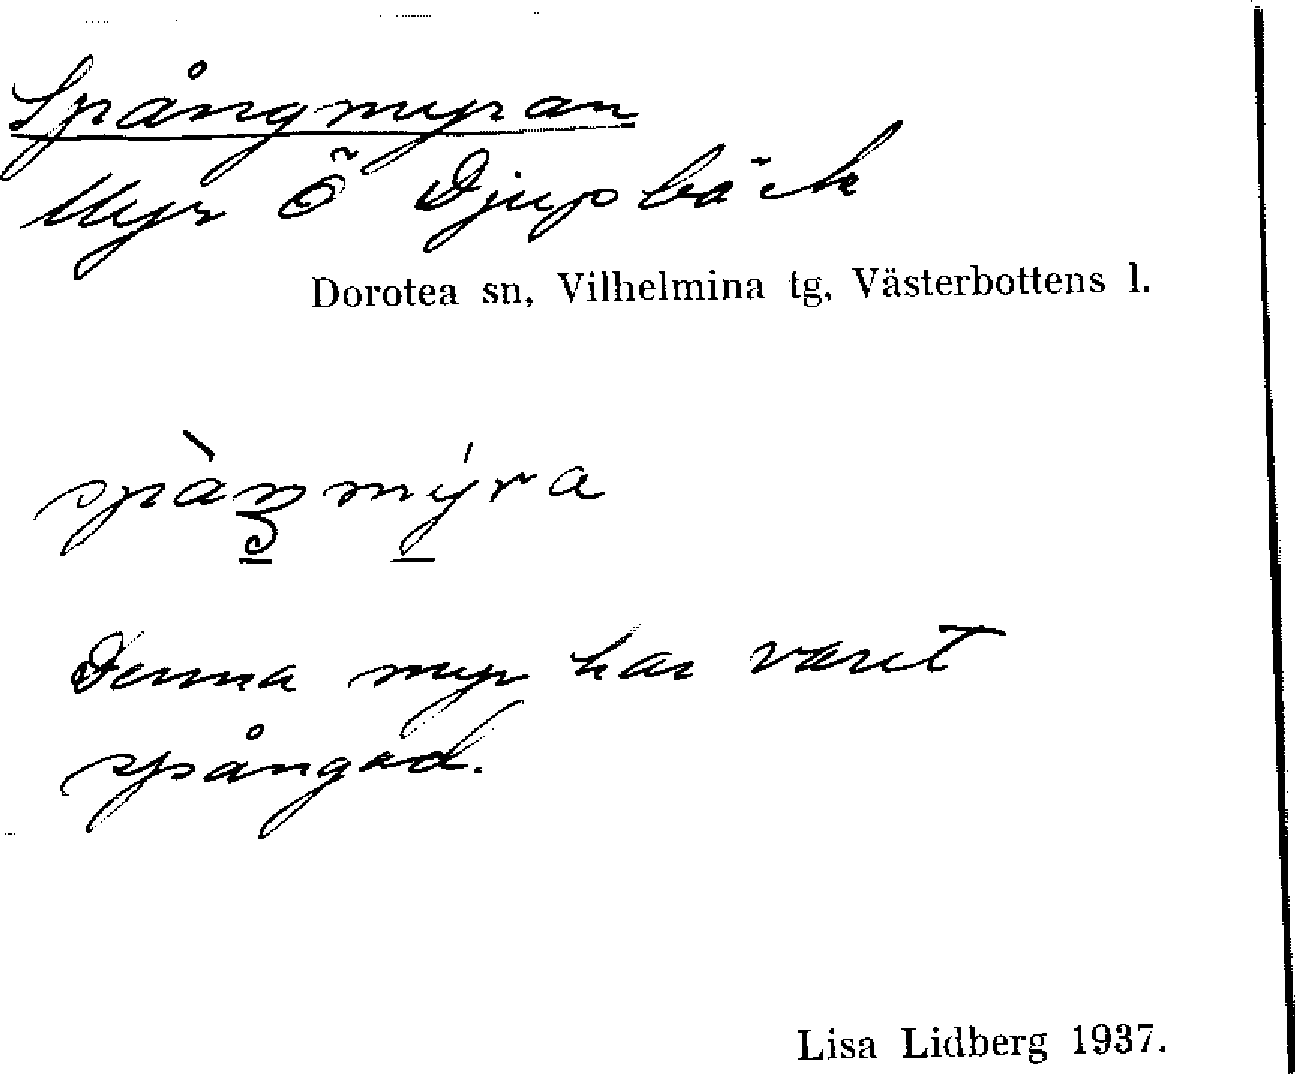 Spångmyran
Myr Ö Djupbäck
Dorotea sn, Vilhelmina tg, Västerbottens l.
spàŋmýra
Denna myr har varit
spångad.
Lisa Lidberg 1937.